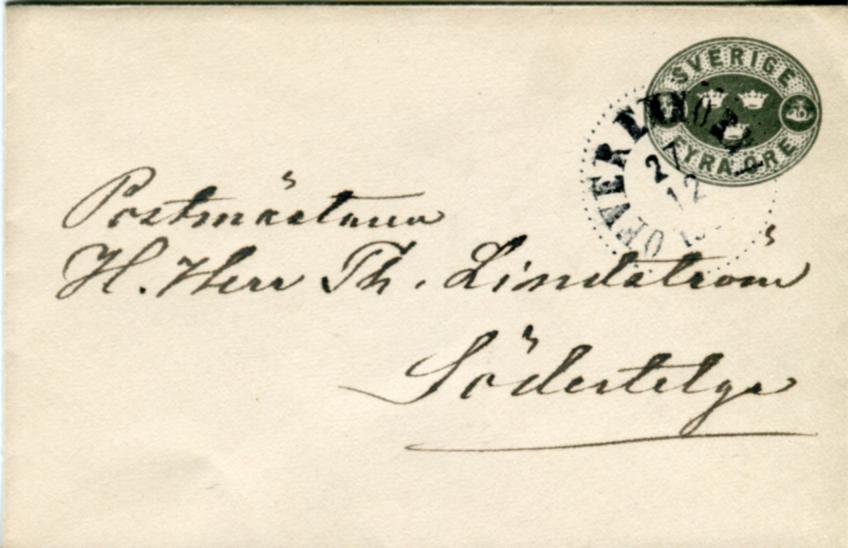 SVERIGE
FYRA ÖRE
27
12
Postmästaren
H. Herr Th. Lindström
Södertelge